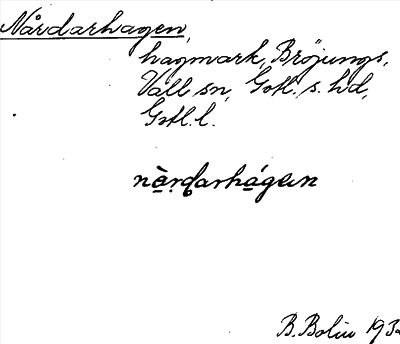 Nårdarhagen,
hagmark, Bröjungs,
Vall sn, Gotl. s. hd,
Gotl. l.
nàrdarhágen
B. Bolin 193